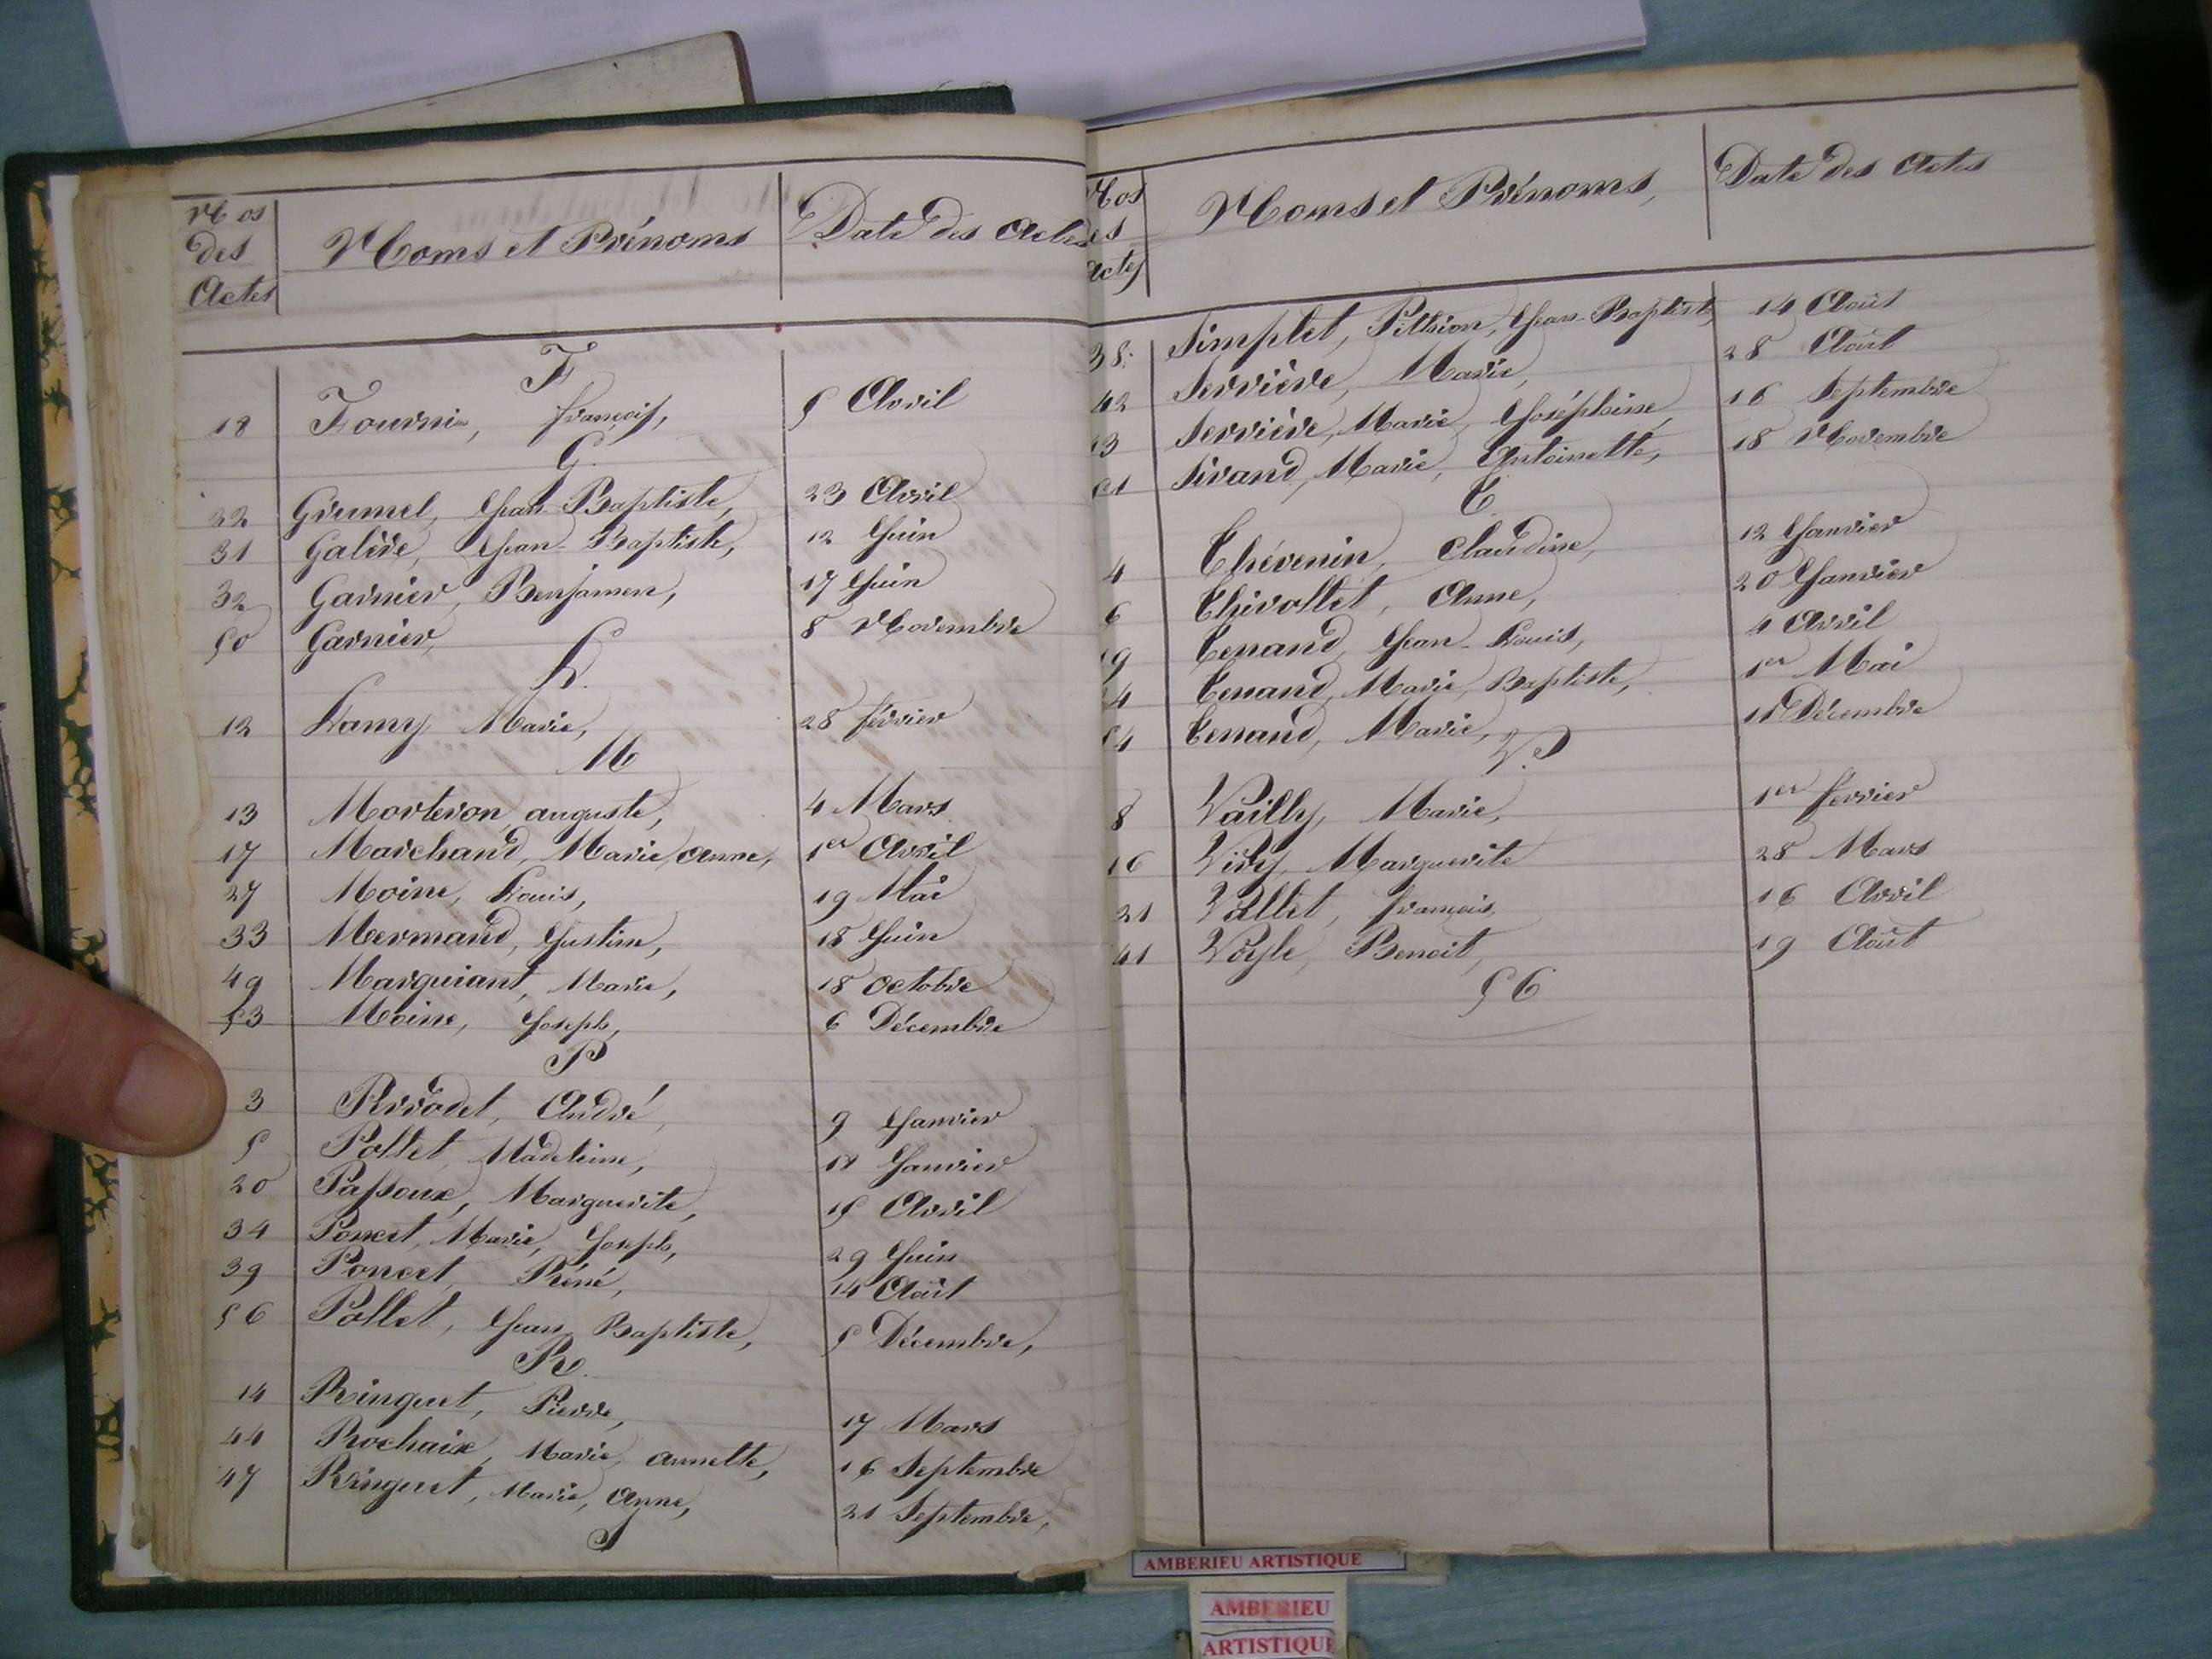 Nos
des
Actes
Noms et Prénoms
Date des Actes
F
18 Fournier, françois, 5 Avril
G.
22 Grumel, Jean-Baptiste, 23 Avril
31 Galère, Jean-Baptiste, 12 Juin
32 Garnier, Benjamen, 17 Juin
50 Garnier, 8 Novembre
L.
12 Lamy, Marie, 28 février
M
13 Morteron, auguste, 4 Mars
17 Marchand, Marie, Anne, 1er Avril
27 Moine, Louis, 19 Mai
33 Mermand, Justine, 18 Juin
49 Marguiant, Marie, 18 octobre
53 Moine, Joseph, 6 Décembre
P
3 André, 9 Janvier
5 Pollet, Madeleine, 18 Janvier
20 Passoux, Marguerite, 15 Avril
34 Poncet, Marie, Joseph, 29 Juin
39 Poncet, Réné, 14 Août
56 Pollet, Jean, Baptiste, 5 Décembre,
R.
14 Ringuet, Pierre, 17 Mars
44 Rochaix, Marie, annette, 16 Septembre
47 Ringuet, Marie, Anne, 21 Septembre,
S
Nos
es
Actes
Noms et Prénoms,
Date des Actes
38. Simplet, Jean-Baptiste, 14 Août
42 Serrière, Marie, 28 Août
13 Serrière, Marie, Joséphine, 16 Septembre
51 Sirand, Marie, Antoinette, 18 Novembre
T
4 Thévenin, Claudine, 12 Janvier
6 Thivollet, Anne, 20 Janvier
19 Tenand, Jean-Louis, 4 Avril
4 Tenand, Marie, Baptiste, 1er Mai
54 Tenand, Marie, 15 Décembre
V.
8 Vailly, Marie, 1er fevrier
16 Marguerite 28 Mars
21 Vallet, françois, 16 Avril
41 Benoit, 19 Août
56
AMBERIEU ARTISTIQUE
AMBERIEU
ARTISTIQUE